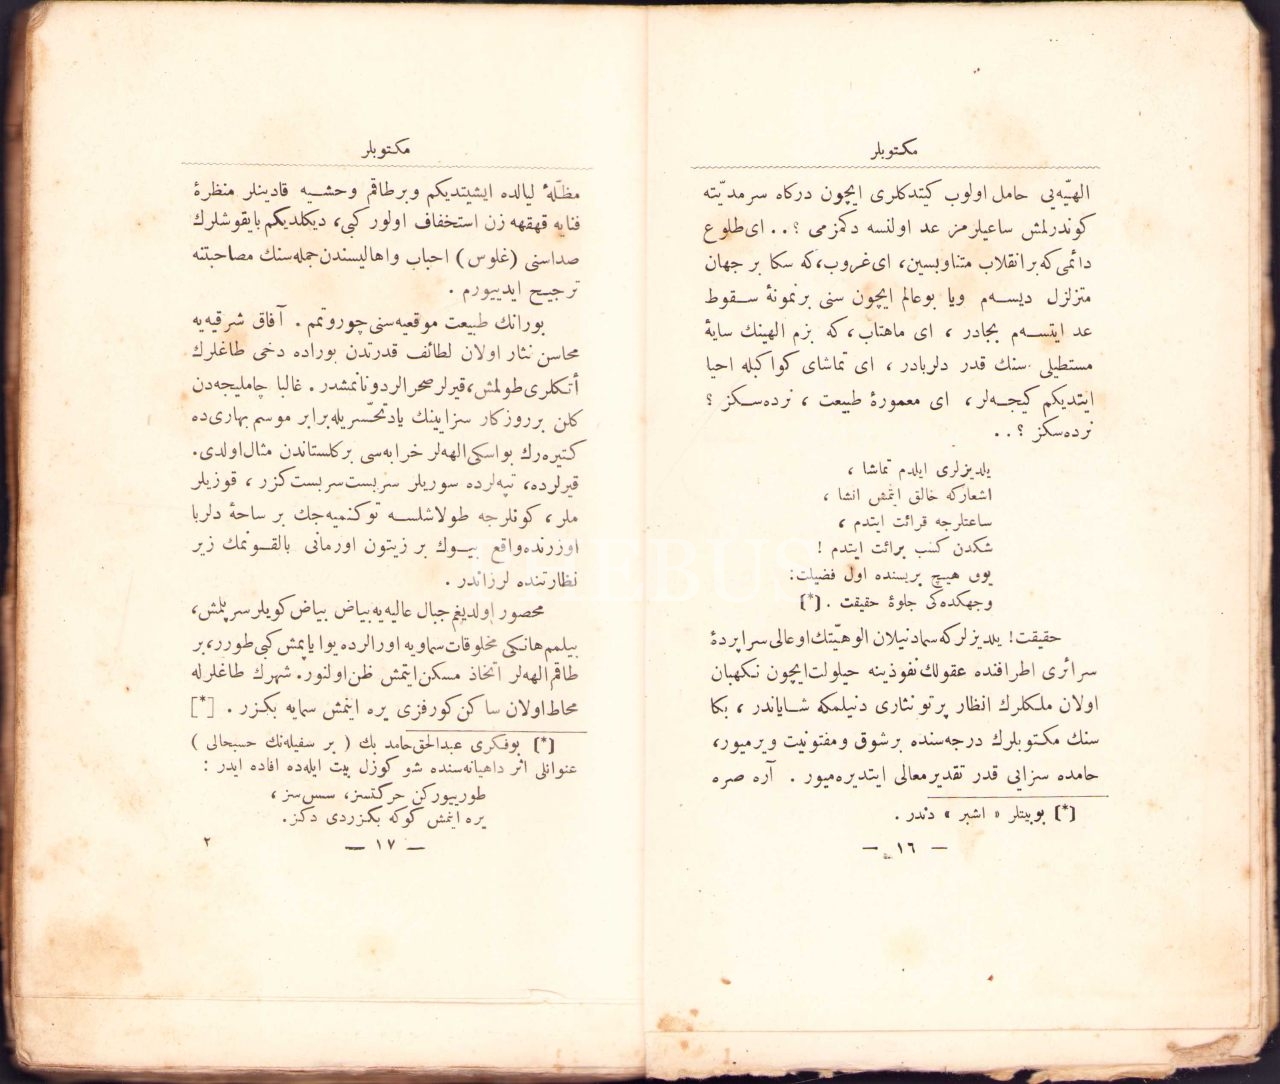 مكتوبلر
الهیّه‌یی حامل اولوب كیتدكلری ایچون دركاه سرمدیّته
كوندرلمش ساعیلرمز عد اولنسه دكمزمی ؟.. ای طلوع
دائمی كه بر انقلاب متناوبسین، ای غروب، كه سكا بر جهان
متزلزل دیسه‌م ویا بو عالم ایچون سنی بر نمونهٔ سقوط
عد ایتسه‌م بجادر ، ای ماهتاب، كه بزم الهینك سایهٔ
مستطیلی سنك قدر دلربادر ، ای تماشای كواكبله احیا
ایتدیكم كیجه‌لر، ای معمورهٔ طبیعت ، نرده‌سكز ؟
نرده‌سكز ؟..
یلدیزلری ایلدم تماشا ،
اشعاركه خالق ایتمش انشا ،
ساعتلرجه قرائت ایتدم ،
شكدن كسب برائت ایتدم !
یوق هیچ بریسنده اول فضیلت:
وجهكده‌كی جلوهٔ حقیقت . [*]
حقیقت! یلدیزلر كه سمادنیلان الوهیّتك او عالی سراپردهٔ
سرائری اطرافنده عقولك نفوذینه حیلولت ایچون نكهبان
اولان ملكلرك انظار پرتو نثاری دنیلمكه شایاندر ، بكا
سنك مكتوبلرك درجه‌سنده بر شوق و مفتونیت ویرمیور،
حامده سزایی قدر تقدیر معالی ایتدیره‌میور . آره صره
[*] بو بیتلر « اشبر » دندر .
— ١٦ —
مكتوبلر
مظلّهٔ لیالده ایشیتدیكم و بر طاقم وحشیه قادینلر منظرهٔ
فنایه قهقهه زن استخفاف اولور كبی، دیكلدیكم بایقوشلرك
صداسنی (غلوس) احباب و اهالیسندن جمله‌سنك مصاحبتنه
ترجیح ایدییورم .
بورانك طبیعت موقعیه‌سنی چوروتمم . آفاق شرقیه‌یه
محاسن نثار اولان لطائف قدرتدن بوراده دخی طاغلرك
أتكلری طولمش، قیرلر صحرالر دونانمشدر . غالبا چاملیجه‌دن
كلن بر روزكار سزایینك یاد تحسّریله برابر موسم بهاری‌ده
كتیره‌رك بو اسكی الهه‌لر خرابه‌سی بر كلستاندن مثال اولدی.
قیرلرده، تپه‌لرده سوریلر سربست سربست كزر ، قوزیلر
ملر ، كونلرجه طولاشلسه توكنمیه‌جك بر ساحهٔ دلربا
اوزرنده واقع بیوك بر زیتون اورمانی بالقونمك زیر
نظارتنده لرزاندر .
محصور اولدیغم جبال عالیه‌یه بیاض بیاض كویلر سرپلمش،
بیلمم هانكی مخلوقات سماویه اورالرده یوا یاپمش كبی طورر، بر
طاقم الهه‌لر اتخاذ مسكن ایتمش ظن اولنور. شهرك طاغلرله
محاط اولان ساكن كورفزی یره اینمش سمایه بكزر . [*]
[*] بو فكری عبدالحق حامد بك ( بر سفیله‌نك حسبحالی )
عنوانلی اثر داهیانه‌سنده شو كوزل بیت ایله‌ده افاده ایدر :
طورییوركن حركتسز، سس سز ،
یره اینمش كوكه بكزردی دكز.
— ١٧ —
٢